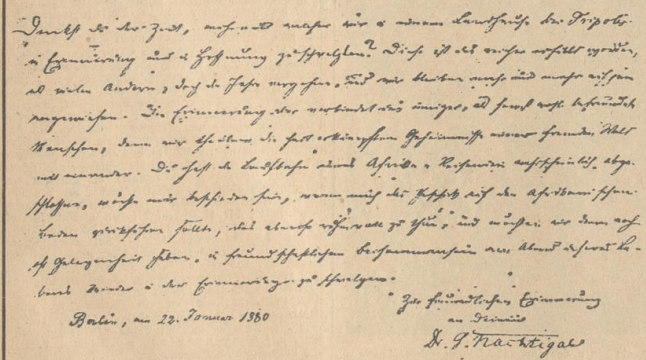 Denkst du der Zeit, während welcher wir in unserem Landhause bei Tripolis
in Erinnerung und in Hoffnung schwelgten? Diese ist uns reicher erfüllt worden,
als vielen Andern; doch die Jahre vergehen, und wir bleiben mehr und mehr auf jene
angewiesen. Die Erinnerung aber verbindet uns inniger, als sonst wohl befreundete
Menschen, denn wir theilen die Geheimnisse einer fremden Welt
mit einander. Du hast die Laufbahn eines Afrika-Reisenden wahrscheinlich abge-
schlossen; möchte mir beschieden sein, wenn mich das Geschick auf den Afrikanischen
Boden zurückführen sollte, das ebenso zu thun, und möchten wir dann noch
oft Gelegenheit haben, in freundschaftlichem Beisammensein am Abend unseres Le-
bens wieder in der Erinnerung zu schwelgen.
Zur freundlichen Erinnerung
an deinen
Berlin, am 22. Januar 1880
Dr. G. Nachtigal